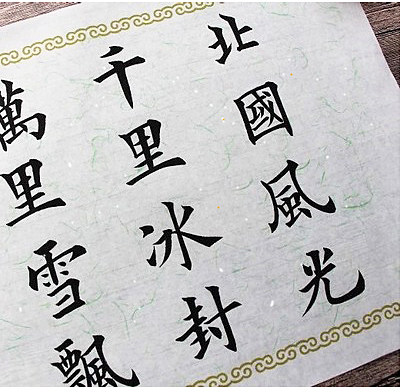 北國風光
千里冰封
萬里雪飄